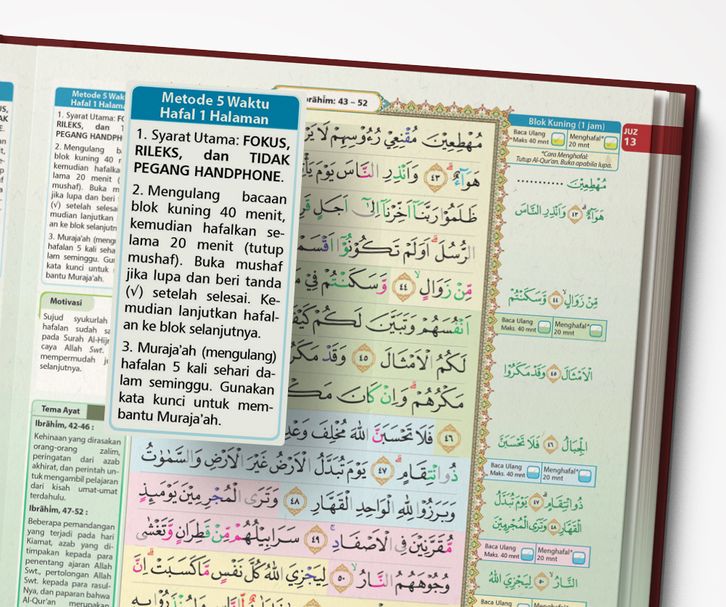 Metode 5 Waktu
Hafal 1 Halaman
1. Syarat Utama: FOKUS,
RILEKS, dan TIDAK
PEGANG HANDPHONE.
2. Mengulang bacaan
blok kuning 40 menit,
kemudian hafalkan se-
lama 20 menit (tutup
mushaf). Buka mushaf
jika lupa dan beri tanda
(√) setelah selesai. Ke-
mudian lanjutkan hafal-
an ke blok selanjutnya.
3. Muraja'ah (mengulang)
hafalan 5 kali sehari da-
lam seminggu. Gunakan
kata kunci untuk mem-
bantu Muraja'ah.
Metode 5 Wak
Hafal 1 Halama
1. Syarat Utama: FO
RILEKS, dan T
PEGANG HANDPH
2. Mengulang ba
blok kuning 40 m
kemudian hafalka
lama 20 menit (
mushaf). Buka m
jika lupa dan beri
(√) setelah seles
mudian lanjutkan
an ke blok selanjutn
3. Muraja'ah (meng
hafalan 5 kali seha
lam seminggu. Gu
kata kunci untuk
bantu Muraja'ah.
Motivasi
Sujud syukurlah
hafalan sudah sa
pada Surah Al-Hijr
caya Allah Swt.
mempermudah
selanjutnya.
Tema Ayat
Ibrāhīm, 42-46 :
Kehinaan yang dirasakan
orang-orang zalim,
peringatan dari azab
akhirat, dan perintah un-
tuk mengambil pelajaran
dari kisah umat-umat
terdahulu.
Ibrāhīm, 47-52 :
Beberapa pemandangan
yang terjadi pada hari
Kiamat, azab yang di-
timpakan kepada para
penentang ajaran Allah
Swt., pertolongan Allah
Swt. kepada para rasul-
Nya, dan paparan bahwa
Al-Qur'an merupakan
brāhīm: 43 – 52
مُهْطِعِيْنَ مُقْنِعِيْ رُءُوْسِهِمْ لَا يَرْ
هَوَاۤءٌ ٤٣ وَاَنْذِرِ النَّاسَ يَوْمَ يَأْ
ظَلَمُوْا رَبَّنَآ اَخِّرْنَآ اِلٰٓى اَجَلٍ قَرِ
الرُّسُلَ اَوَلَمْ تَكُوْنُوْٓا اَقْسَمْ
مِّنْ زَوَالٍ ٤٤ وَّسَكَنْتُمْ فِيْ مَ
اَنْفُسَهُمْ وَتَبَيَّنَ لَكُمْ كَيْفَ
لَكُمُ الْاَمْثَالَ ٤٥ وَقَدْ مَكَرُ
مَكْرُهُمْ وَاِنْ كَانَ مَكْ
٤٦ فَلَا تَحْسَبَنَّ اللّٰهَ مُخْلِفَ وَعْدِ
ذُو انْتِقَامٍ ٤٧ يَوْمَ تُبَدَّلُ الْاَرْضُ غَيْرَ الْاَرْضِ وَالسَّمٰوٰتُ
وَبَرَزُوْا لِلّٰهِ الْوَاحِدِ الْقَهَّارِ ٤٨ وَتَرَى الْمُجْرِمِيْنَ يَوْمَىِٕذٍ
مُّقَرَّنِيْنَ فِى الْاَصْفَادِ ٤٩ سَرَابِيْلُهُمْ مِّنْ قَطِرَانٍ وَّتَغْشٰى
وُجُوْهَهُمُ النَّارُ ٥٠ لِيَجْزِيَ اللّٰهُ كُلَّ نَفْسٍ مَّا كَسَبَتْ اِنَّ
Blok Kuning (1 jam)
Baca Ulang Maks. 40 mnt
Menghafal* 20 mnt
*Cara Menghafal:
Tutup Al-Qur'an. Buka apabila lupa.
مُهْطِعِيْنَ ...........
هَوَاۤءٌ ٤٣ وَاَنْذِرِ النَّاسَ
مِّنْ زَوَالٍ ٤٤ وَّسَكَنْتُمْ
Baca Ulang Maks. 40 mnt
Menghafal* 20 mnt
الْاَمْثَالَ ٤٥ وَقَدْ مَكَرُوْا
الْجِبَالُ ٤٦ فَلَا تَحْسَبَنَّ
Baca Ulang Maks. 40 mnt
Menghafal* 20 mnt
ذُو انْتِقَامٍ ٤٧ يَوْمَ تُبَدَّلُ
الْقَهَّارِ ٤٨ وَتَرَى الْمُجْرِمِيْنَ
Baca Ulang Maks. 40 mnt
Menghafal* 20 mnt
النَّارُ ٥٠ لِيَجْزِيَ اللّٰهُ
Baca Ulang
Menghafal*
JUZ
13